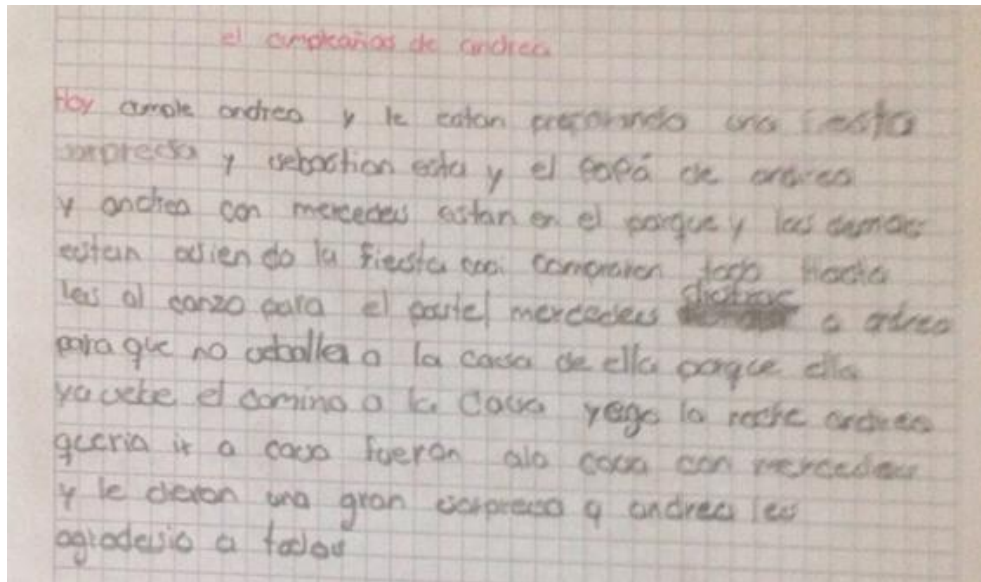 el cumpleaños de andrea
Hoy cumple andrea y le estan preparando una fiesta
sorpresa y sebastian esta y el papá de andrea
y andrea con mercedes estan en el parque y los demas
estan asiendo la fiesta compraron todo Hasta
les al canzo para el pastel mercedes distrae a adrea
para que no balla a la casa de ella porque ella
ya sebe el camino a la casa yego la noche andrea
queria ir a casa fueron ala casa con mercedes
y le dieron una gran sorpresa y andrea les
agradesio a todos